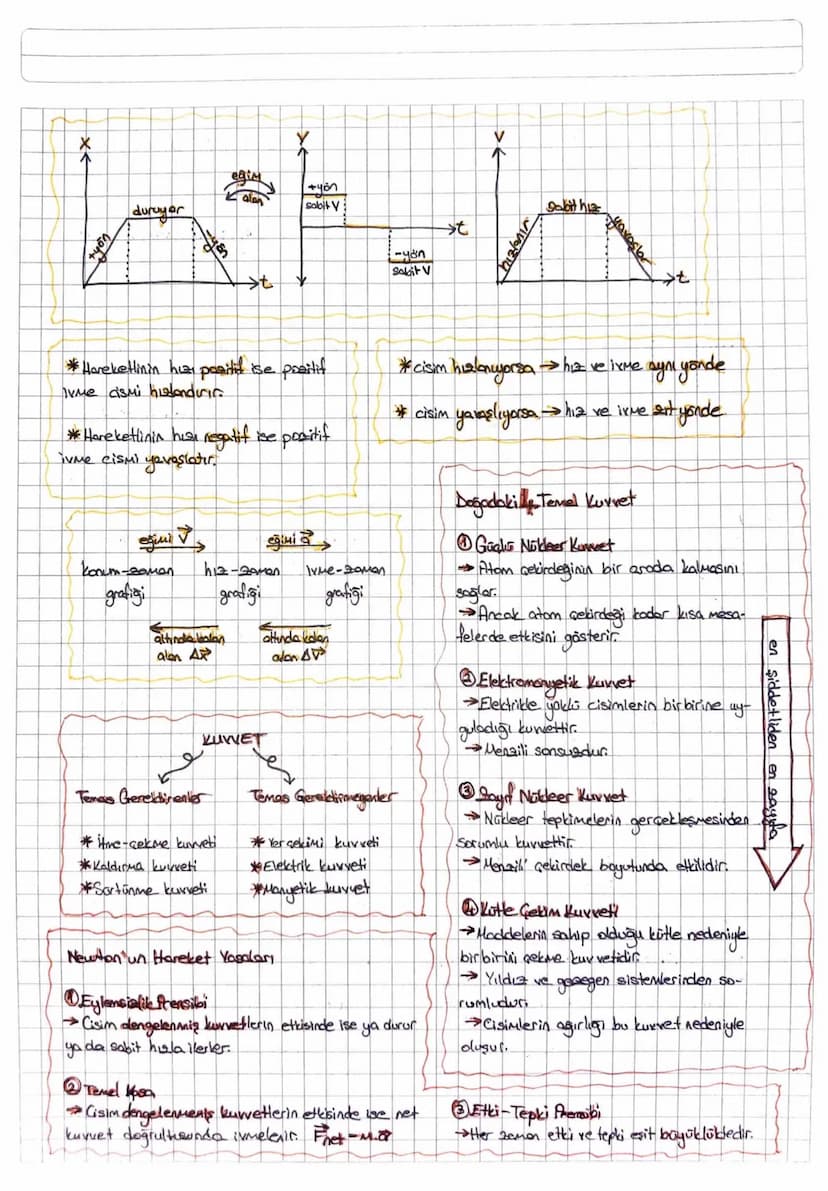 X
duruyor
+yön
-yön
t
eğim
alan
V
+yön
sabit V
-yön
sabit V
t
V
sabit hız
hızlanır
yavaşlar
t
* Hareketlinin hızı pozitif ise pozitif
ivme cismi hızlandırır.
* Hareketlinin hızı negatif ise pozitif
ivme cismi yavaşlatır.
* cisim hızlanıyorsa → hız ve ivme aynı yönde
* cisim yavaşlıyorsa → hız ve ivme zıt yönde
eğimi V
eğimi a
konum-zaman hız-zaman ivme-zaman
grafiği grafiği grafiği
altında kalan altında kalan
alan ΔX alan ΔV
KUVVET
Temas Gerektirenler
* İtme-çekme kuvveti
* Kaldırma kuvveti
* Sürtünme kuvveti
Temas Gerektirmeyenler
* Yer çekimi kuvveti
* Elektrik kuvveti
* Manyetik kuvvet
Doğadaki 4 Temel Kuvvet
① Güçlü Nükleer Kuvvet
→ Atom çekirdeğinin bir arada kalmasını
sağlar.
→ Ancak atom çekirdeği kadar kısa mesa-
felerde etkisini gösterir.
② Elektromanyetik Kuvvet
→ Elektrikle yüklü cisimlerin birbirine uy-
guladığı kuvvettir.
→ Menzili sonsuzdur.
③ Zayıf Nükleer Kuvvet
→ Nükleer tepkimelerin gerçekleşmesinden
sorumlu kuvvettir.
→ Menzili çekirdek boyutunda etkilidir.
④ Kütle Çekim Kuvveti
→ Maddelerin sahip olduğu kütle nedeniyle
birbirini çekme kuvvetidir.
→ Yıldız ve gezegen sistemlerinden so-
rumludur.
→ Cisimlerin ağırlığı bu kuvvet nedeniyle
oluşur.
en şiddetliden en zayıfa
Newton'un Hareket Yasaları
① Eylemsizlik Prensibi
→ Cisim dengelenmiş kuvvetlerin etkisinde ise ya durur
ya da sabit hızla ilerler.
② Temel Yasa
→ Cisim dengelenmemiş kuvvetlerin etkisinde ise net
kuvvet doğrultusunda ivmelenir. Fnet = m.a
③ Etki-Tepki Prensibi
→ Her zaman etki ve tepki eşit büyüklüktedir.